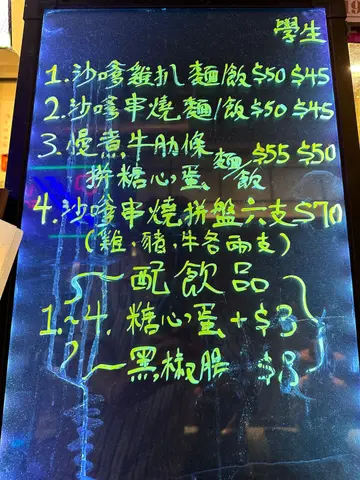 學生
1.沙嗲雞扒麵/飯 $50 $45
2.沙嗲串燒麵/飯 $50 $45
3.慢煮牛肋條
拼糖心蛋 麵/飯 $55 $50
4.沙嗲串燒拼盤六支$70
(雞,豬,牛各兩支)
~配飲品~
1.~4. 糖心蛋 + $3
黑椒腸 $8